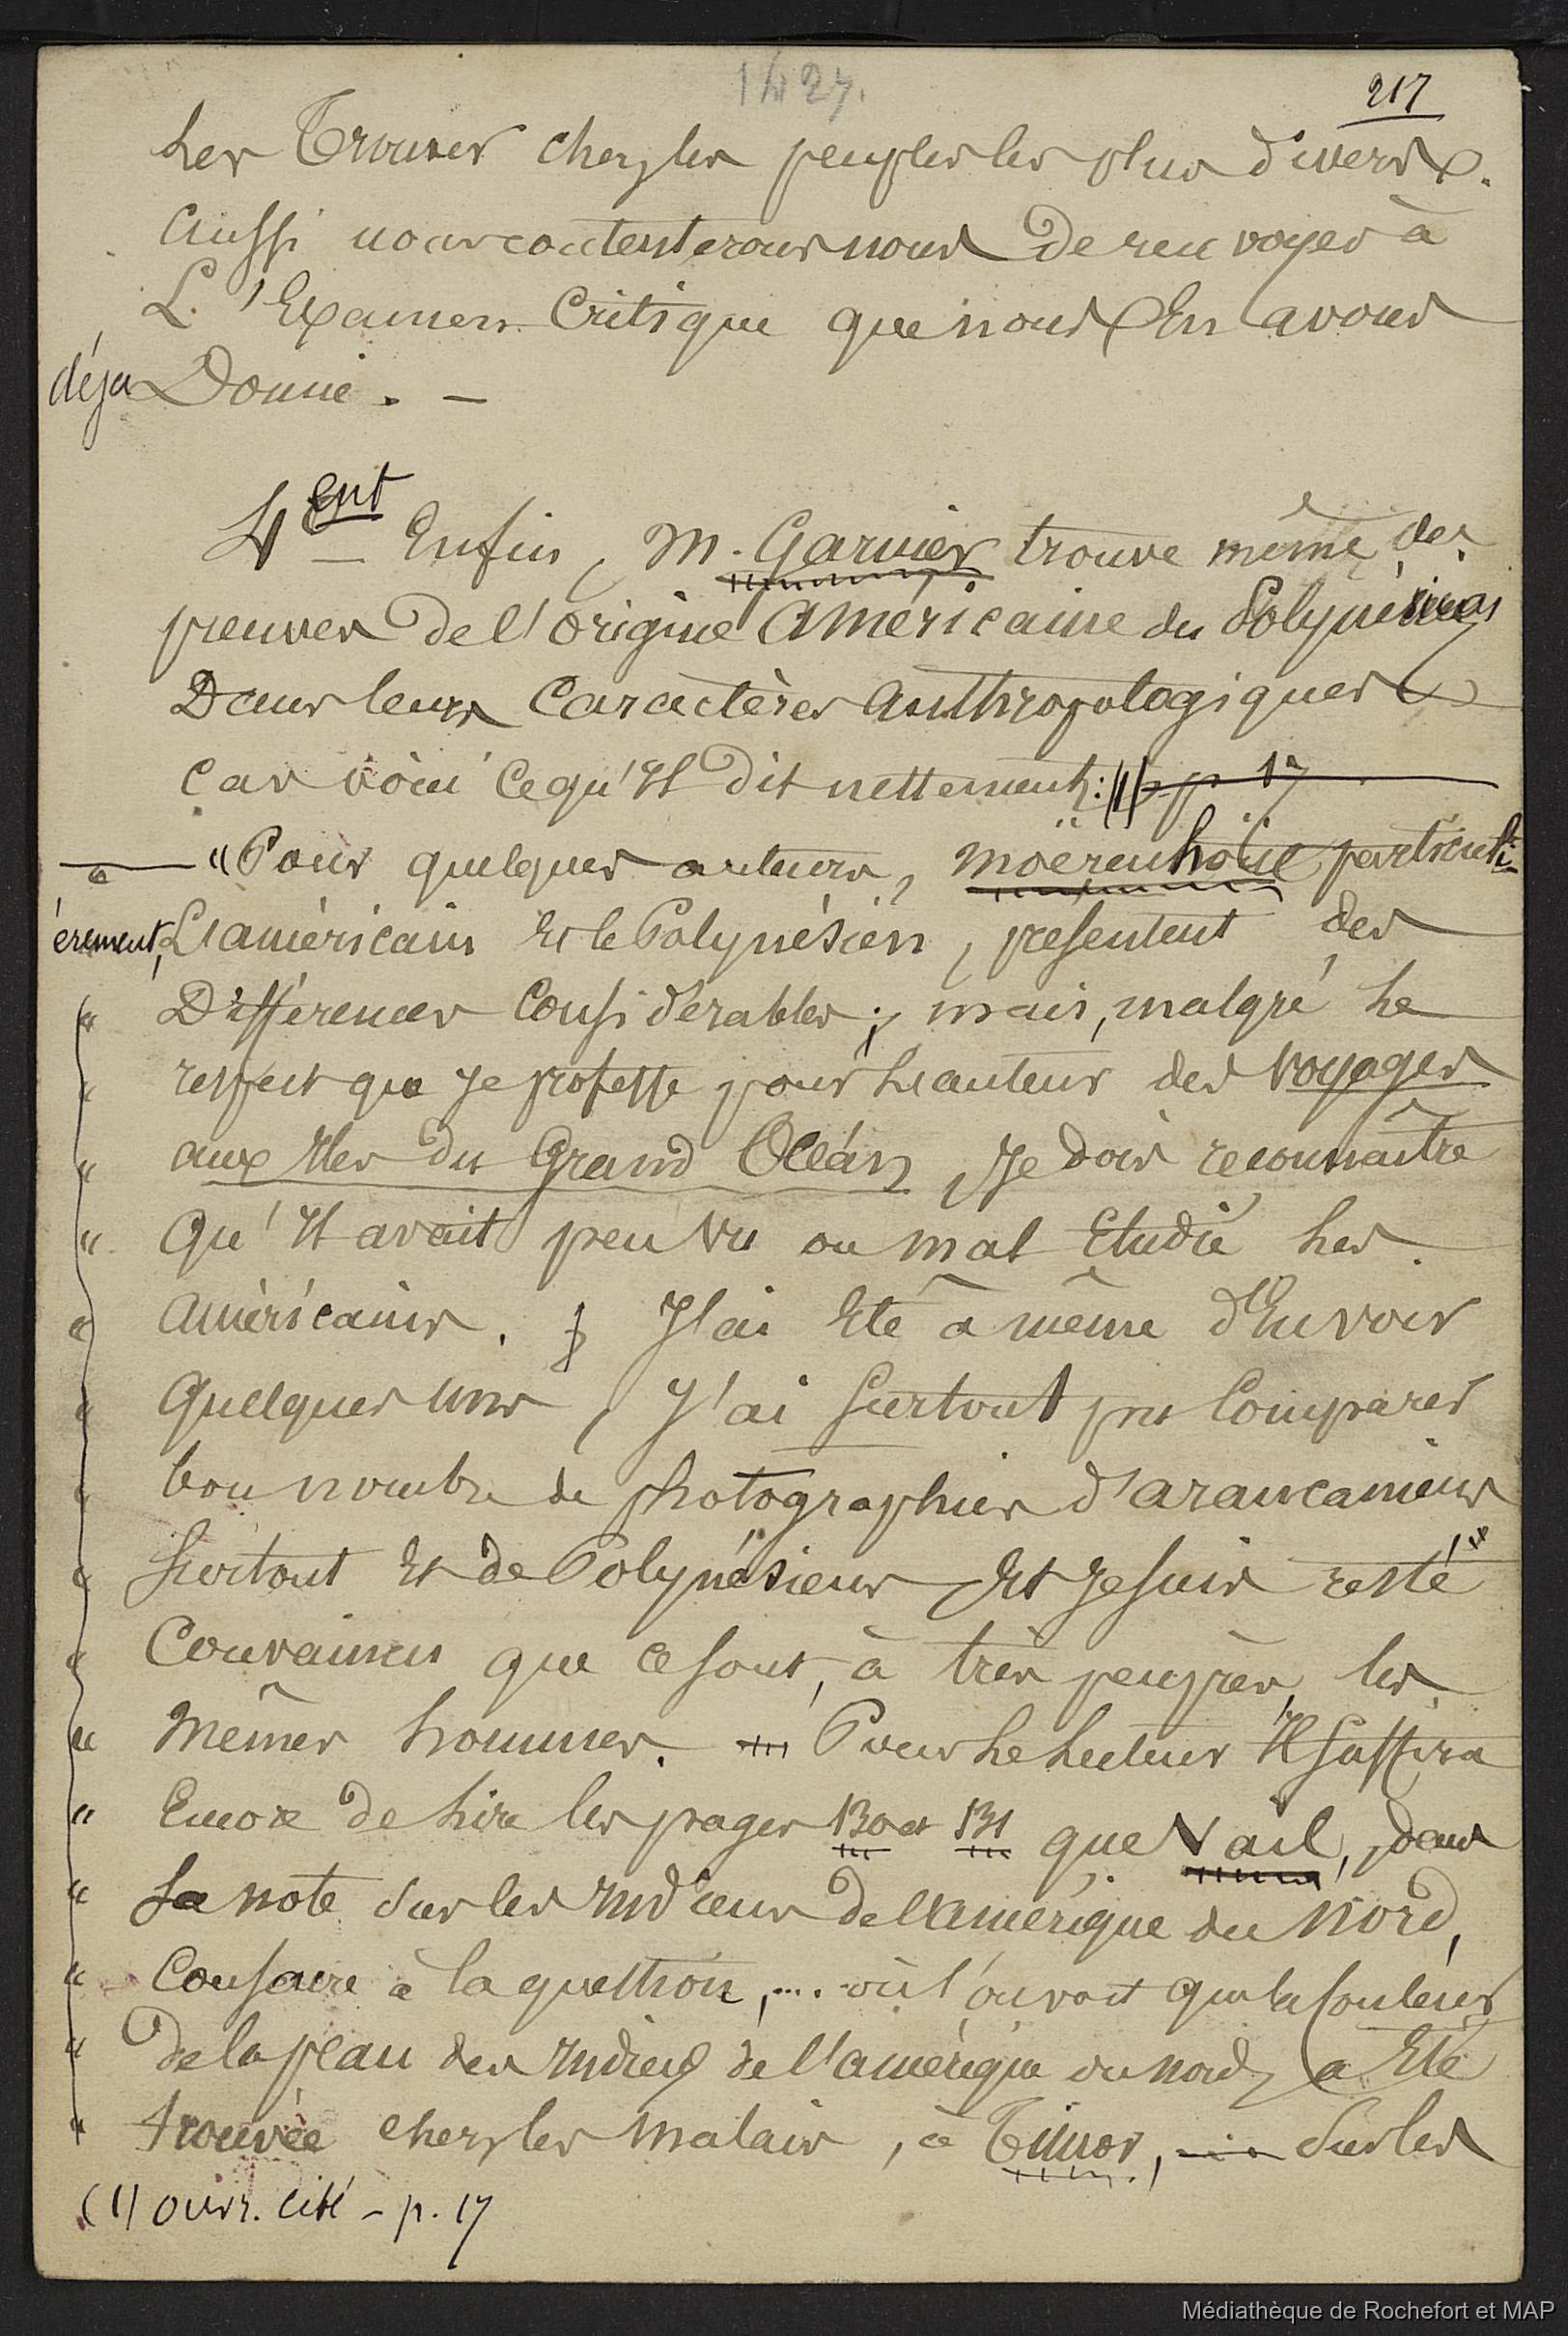 1427.
217
les trouver chez les peuples les plus divers.
Aussi nous contenterons nous de renvoyer à
L'Examen Critique que nous En avons
déja Donné. —
4ent — Enfin, M. Garnier trouve même des
preuves de l'origine Américaine des Polynésiens
Dans leurs Caractères Anthropologiques
Car voici ce qu'Il dit nettement : (1) p. 17
— "Pour quelques auteurs, Moërenhoüt particuli-
èrement, L'américain Et le Polynésien, présentent des
" Différences Considérables ; mais, malgré le
" respect que Je professe pour L'auteur des Voyages
" aux Iles du Grand Océan, Je dois reconnaître
" Qu'Il avait peu vu ou mal Etudié les
" Américains. J'ai Eté à même d'En voir
" Quelques uns, J'ai Surtout pu Comparer
" bon nombre de photographies d'araucaniens
" Surtout Et de Polynésiens Et Je suis resté
" Convaincu que ce sont, à très peu près, les
" Mêmes hommes. Pour le lecteur Il Suffira
" Encore de lire les pages 130 et 131 que Vail, dans
" Sa note Sur les Indiens de l'Amérique du Nord,
" Consacre à la question, .... où l'on voit que la Couleur
" de la peau des Indiens de l'amérique du nord, a Eté
" trouvée chez les Malais, à Timor, Sur les
(1) ouvr. cité – p. 17
Médiathèque de Rochefort et MAP